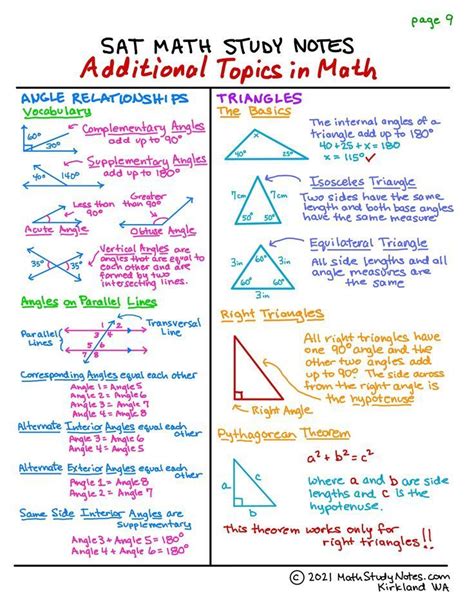 page 9
SAT MATH STUDY NOTES
Additional Topics in Math
ANGLE RELATIONSHIPS
Vocabulary
60°
30°
Complementary Angles
add up to 90°
Supplementary Angles
add up to 180°
40°
140°
Less than
90°
Acute Angle
Greater
than 90°
Obtuse Angle
35°
35°
Vertical Angles are
angles that are equal to
each other and are
formed by two
intersecting lines.
Angles on Parallel Lines
Parallel
Lines
1
2
3
4
5
6
7
8
Transversal
Line
Corresponding Angles equal each other
Angle 1 = Angle 5
Angle 2 = Angle 6
Angle 3 = Angle 7
Angle 4 = Angle 8
Alternate Interior Angles equal each
other
Angle 3 = Angle 6
Angle 4 = Angle 5
Alternate Exterior Angles equal each
other
Angle 1 = Angle 8
Angle 2 = Angle 7
Same Side Interior Angles are
Supplementary
Angle 3 + Angle 5 = 180°
Angle 4 + Angle 6 = 180°
TRIANGLES
The Basics
x
40°
25°
The internal angles of a
triangle add up to 180°
40 + 25 + x = 180
x = 115° ✓
7cm
7cm
50°
50°
Isosceles Triangle
Two sides have the same
length and both base angles
have the same measure
3in
3in
60°
60°
60°
3in
Equilateral Triangle
All side lengths and all
angle measures are
the same
Right Triangles
Right Angle
All right triangles have
one 90° angle and the
other two angles add
up to 90°. The side across
from the right angle is
the hypotenuse
Pythagorean Theorem
a
b
c
a² + b² = c²
where a and b are side
lengths and c is the
hypotenuse.
This theorem works only for
right triangles!!
© 2021 MathStudyNotes.com
Kirkland WA